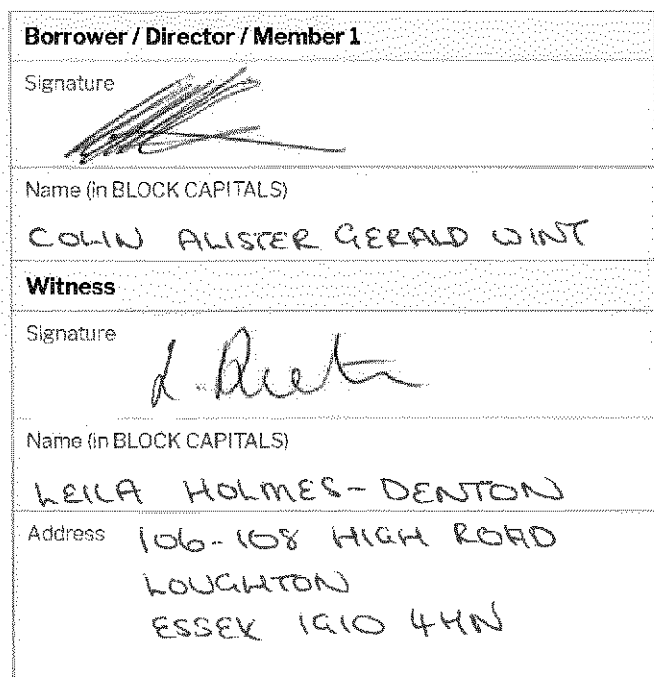 Borrower / Director / Member 1
Signature
Name (in BLOCK CAPITALS)
COLIN ALISTER GERALD WINT
Witness
Signature
Name (in BLOCK CAPITALS)
LEILA HOLMES-DENTON
Address 106-108 HIGH ROAD
LOUGHTON
ESSEX IG10 4HN